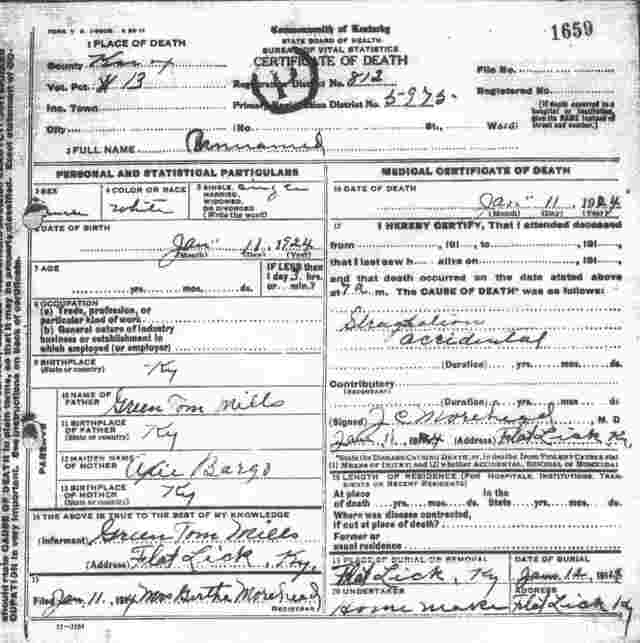 Commonwealth of Kentucky
STATE BOARD OF HEALTH
BUREAU OF VITAL STATISTICS
CERTIFICATE OF DEATH
1659
1 PLACE OF DEATH
County Knox
File No.
Vot. Pct. #13
Registration District No. 812
Registered No.
Inc. Town
Primary Registration District No. 5975
(If death occurred in a hospital or institution, give its NAME instead of street and number.)
City (No. St., Ward)
2 FULL NAME Unnamed
PERSONAL AND STATISTICAL PARTICULARS
3 SEX
4 COLOR OR RACE White
5 SINGLE, MARRIED, WIDOWED, OR DIVORCED (Write the word) Single
6 DATE OF BIRTH
Jan 11, 1924
(Month) (Day) (Year)
7 AGE
yrs. mos. ds.
IF LESS than 1 day 3 hrs. or min.?
8 OCCUPATION
(a) Trade, profession, or particular kind of work
(b) General nature of industry business or establishment in which employed (or employer)
9 BIRTHPLACE
(State or country) Ky
PARENTS
10 NAME OF FATHER Green Tom Mills
11 BIRTHPLACE OF FATHER
(State or country) Ky
12 MAIDEN NAME OF MOTHER Bargo
13 BIRTHPLACE OF MOTHER
(State or country) Ky
14 THE ABOVE IS TRUE TO THE BEST OF MY KNOWLEDGE
(Informant) Green Tom Mills
(Address) Flat Lick, Ky.
15
Filed Jan. 11, 1924 Mrs Bertha Morehead
REGISTRAR
MEDICAL CERTIFICATE OF DEATH
16 DATE OF DEATH
Jan 11, 1924
(Month) (Day) (Year)
17 I HEREBY CERTIFY, That I attended deceased
from , 191 , to , 191 ,
that I last saw h alive on , 191 ,
and that death occurred on the date stated above
at 7 A. m. The CAUSE OF DEATH* was as follows:
accidental
(Duration) yrs. mos. ds.
Contributory
(SECONDARY)
(Duration) yrs. mos. ds.
(Signed) J C Morehead, M. D
Jan. 11, 1924 (Address) Flat Lick Ky
*State the DISEASE CAUSING DEATH, or, in deaths from VIOLENT CAUSES state (1) MEANS OF INJURY; and (2) whether ACCIDENTAL, SUICIDAL OR HOMICIDAL
18 LENGTH OF RESIDENCE (FOR HOSPITALS, INSTITUTIONS, TRANSIENTS OR RECENT RESIDENTS)
At place of death yrs. mos. ds. In the State yrs. mos. ds.
Where was disease contracted, if not at place of death?
Former or usual residence
19 PLACE OF BURIAL OR REMOVAL
DATE OF BURIAL
Flat Lick, Ky Jan. 12, 1924
20 UNDERTAKER
Home make Flat Lick Ky
11-3184